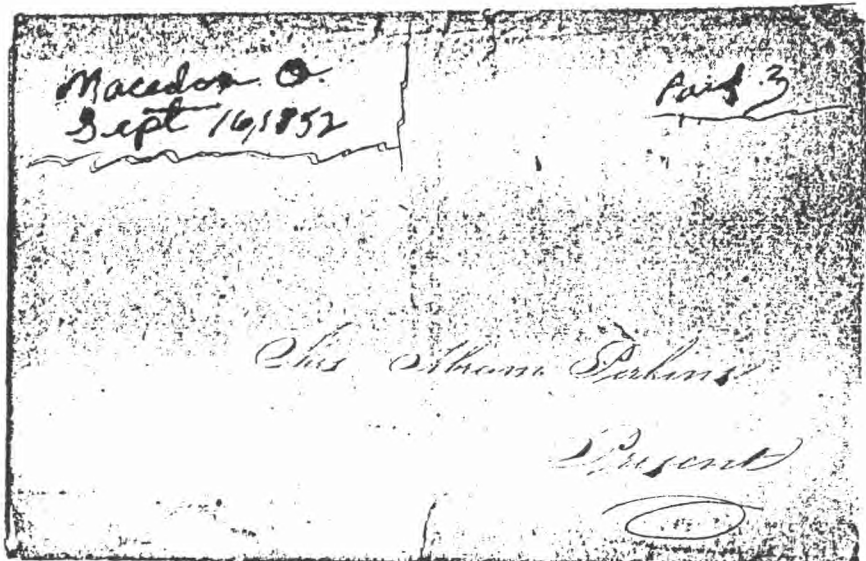 Macedon. O.
Sept 16, 1852
Paid 3
Abram Perkins
Present